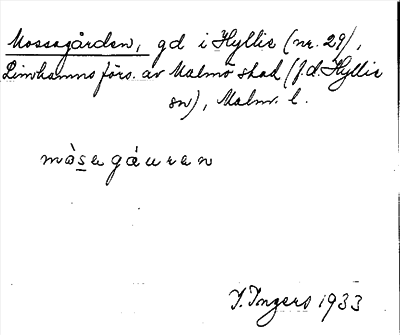 Mossagården, gd i Hyllie (nr. 29),
Limhamns förs. av Malmö stad (f.d. Hyllie
sn), Malm. l.
mòsagáuren
I. Ingers 1933